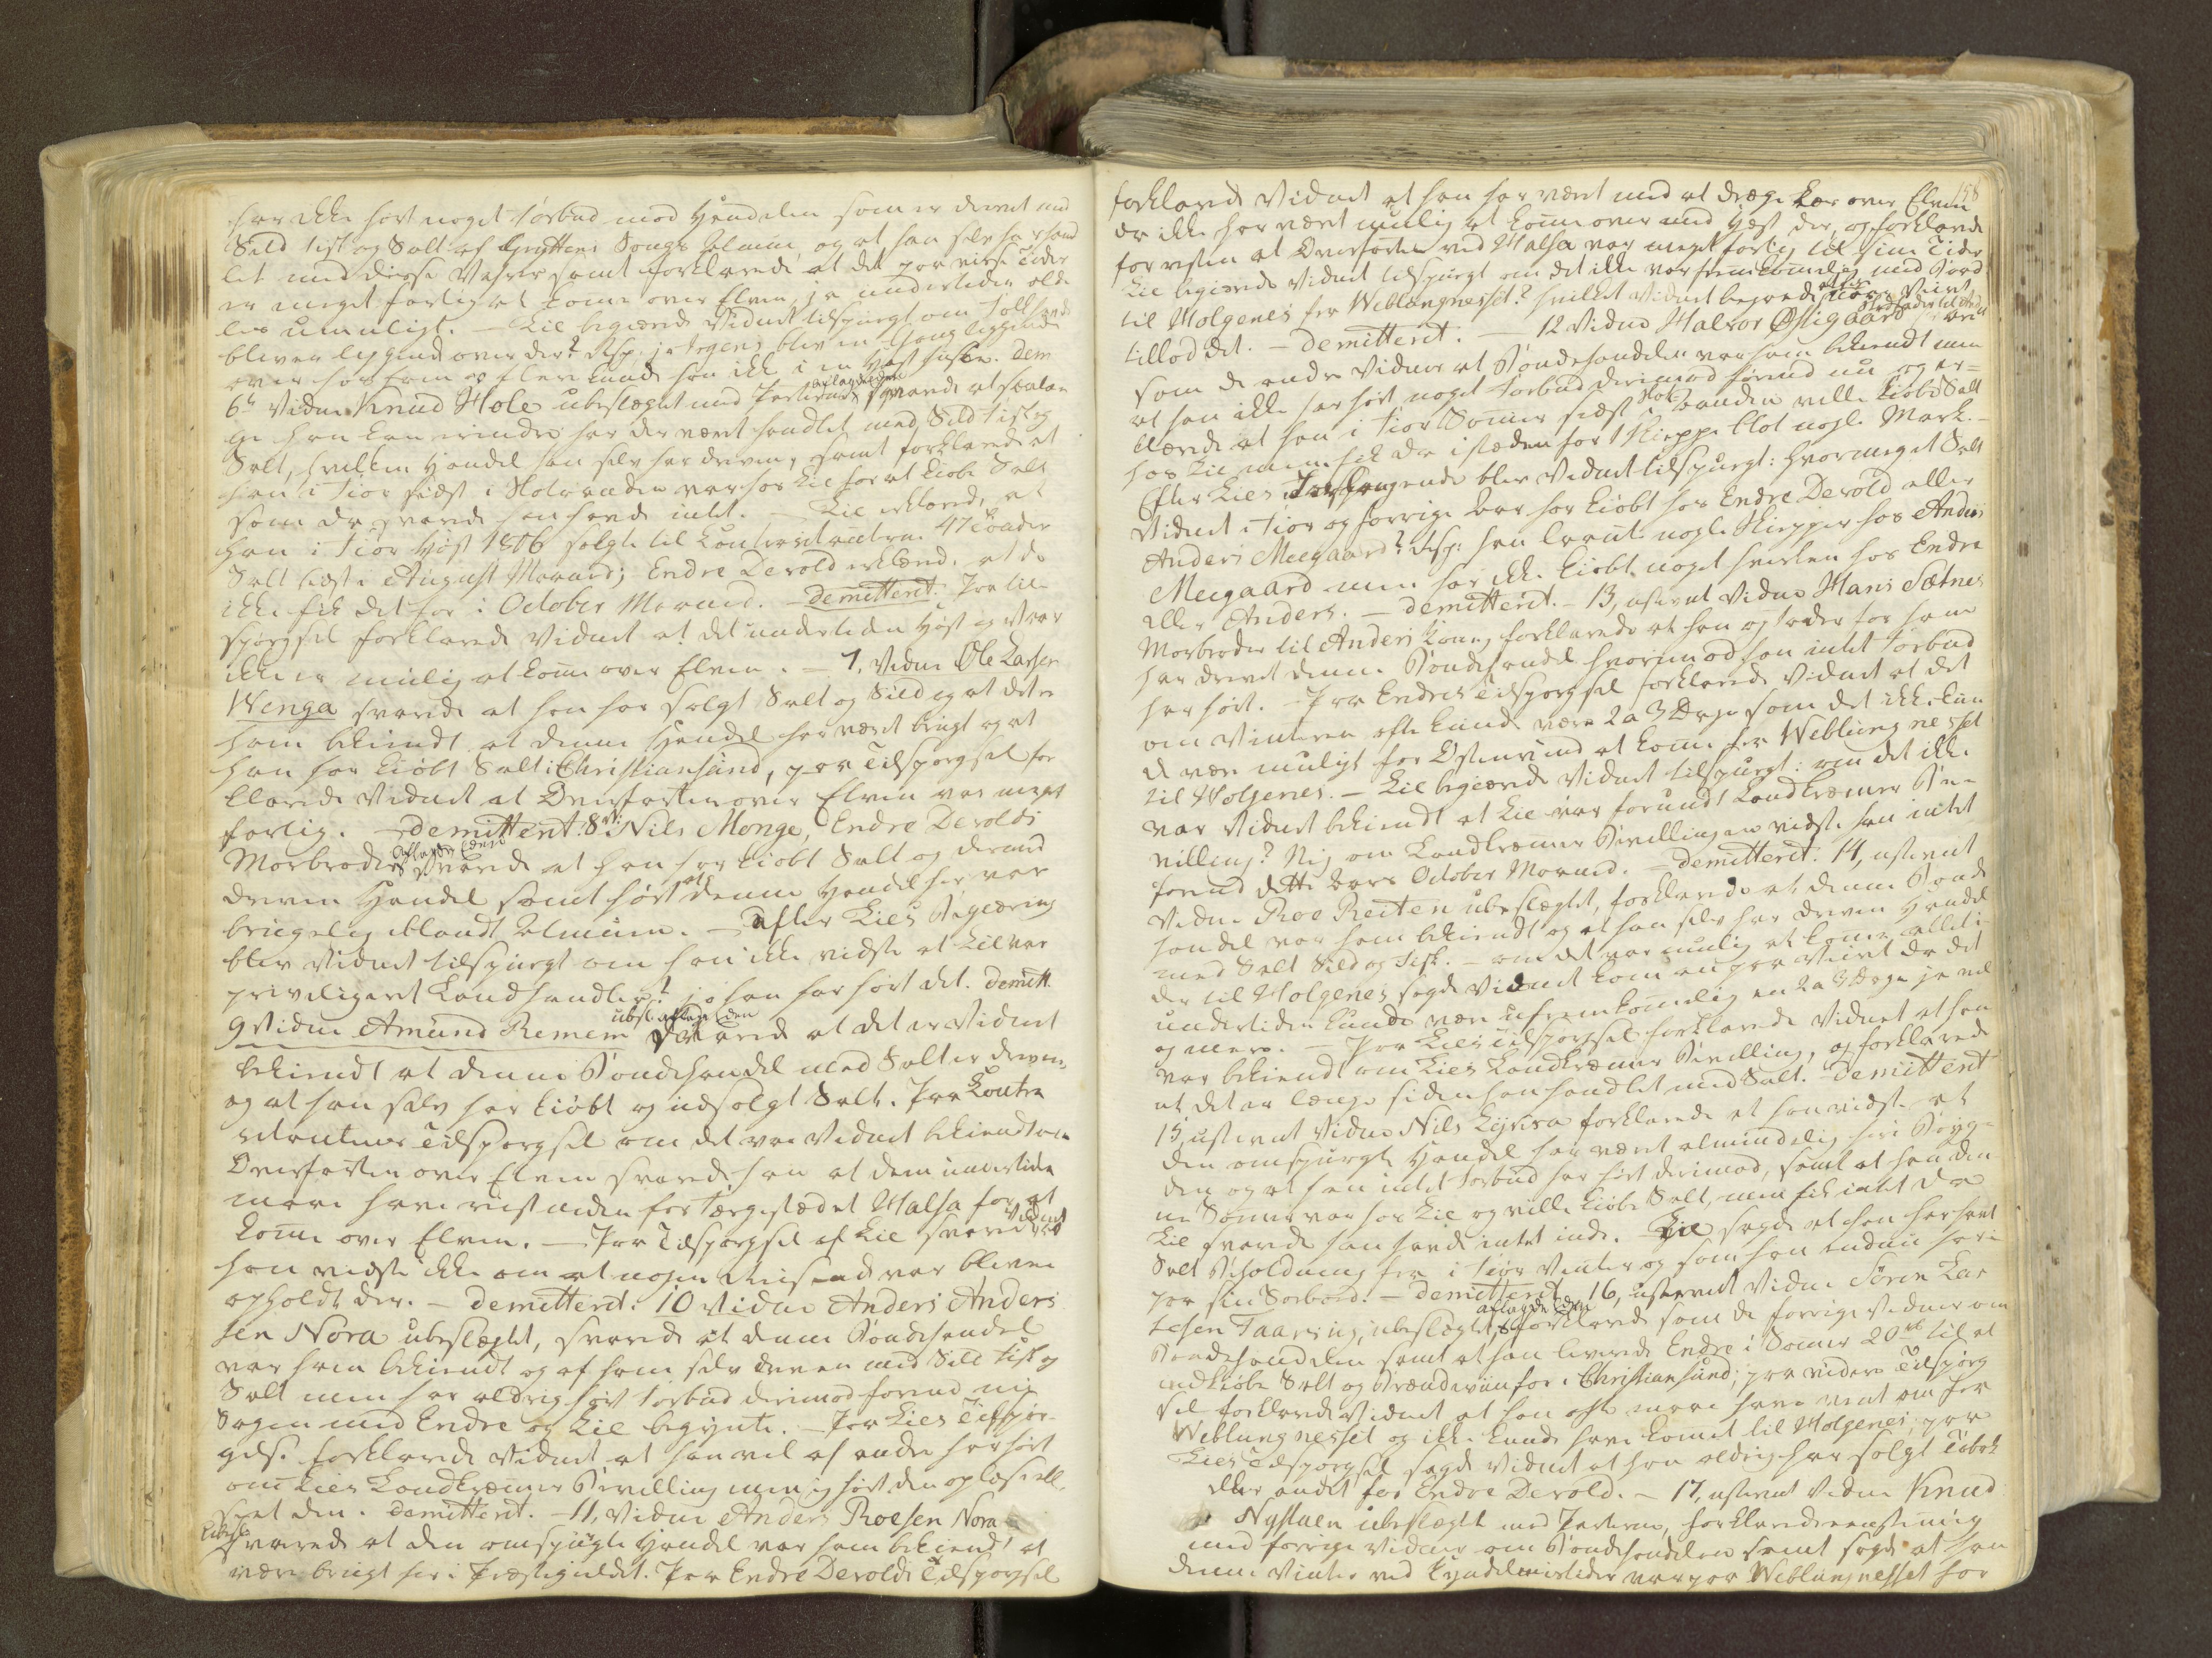 har ikke hørt noget Forbud mod Handelen som er drevet med
Sild Fisk og Salt af Gryttens Sougs Almue og at han selv har hand
let med disse Vahrer samt forklarede at det paa visse Tider
er meget farligt at komme over Elven, ja undertiden aldeles
les umuligt. — Lie begierede Vidnet tilspurgt om Folk havde
bleven liggende over der? Resp: ja
over hos ham flere kunde han ikke i en Hast huske. Dem
6te Vidne Knud Hole ubeslægtet med Parterne aflagde Eden svarede at saalæn
ge han kan erindre har der været handlet med Sild Fisk og
Salt, hvilken Handel han selv har dreven, samt forklarede at
han i Fior sidst i Slotvaanden var hos Lie for at kiøbe Salt
som da svarede han havde intet. — Lie erklærede at
han i Fior Høst 1806 solgte til Contracitanterne 47 Tønder
Salt sidst i August Maaned; Endre Devold erklærede at de
ikke fik det før i October Maaned. — Demitteret. Paa Til-
spørgsel forklarede Vidnet at det undertiden Høst og Vaar
ikke er mulig at komme over Elven. — 7, Vidne Ole Larsen
Wenga svarede at han har solgt Salt og Sild og at det er
ham bekiendt at denne Handel har været brugt og at
han har kiøbt Salt i Christiansund, paa Tilspørgsel for
klarede Vidnet at Overfarten over Elven var meget
farlig. — demitteret. 8de Nils Monge, Endre Devolds
Morbroder aflagde Eden svarede at han har kiøbt Salt og dermed
dreven Handel samt hørt at denne Handel her var
brugelig iblandt Almuen. — Efter Lies Begiæring
blev Vidnet tilspurgt om han ikke vidste at Lie var
priviligeret Landhandler? jo han har hørt det. Demitt.
9 Vidne Amund Remem ubesl. aflagde Eden svarede at det er Vidnet
bekiendt at denne Bondehandel med Salt er dreven,
og at han selv har kiøbt og udsolgt Salt. Paa Contra
citantens Tilspørgsel om det var Vidnet bekiendt om
Overfarten over Elven svarede han at dem undertiden
maae have reist neden for Færgestædet Halsa for at
komme over Elven. — Paa Tilspørgsel af Lie svarede Vidnet at
han vidste ikke om at nogen Reisende var bleven
opholdt der. — Demitteret. 10 Vidne Anders Anders
sen Nora ubeslægtet, svarede at denne Bondehandel
var ham bekiendt og af ham selv dreven med Sild Fisk og
Salt men har aldrig hørt Forbud derimod forend nu
Sagen med Endre og Lie begynte. — Paa Lies Tilspør-
gelse forklarede Vidnet at han vel af andre har hørt
om Lies Landkræmmer Bevilling men ej hørt den oplæst eller
seet den. demitteret. — 11, Vidne Anders Roesen Nora
ubesl. svarede at den omspurgte Handel var ham bekiendt at
være brugt her i Præstegieldet. Paa Endre Devolds Tilspørgsel
158
forklarede Vidnet at han har været med at drage Kar over Elven
da ikke har været mulig at komme over med Hæst der, og forklarede
forresten at Overfarten ved Halsa var meget farlig til sine Tider
Lie begierede Vidnet tilspurgt om det ikke var fremkommelig med Baad
til Holgenes fra Weblungnesset? hvilket Vidnet bejaede efter som Veiret
tillod det. — demitteret. — 12 Vidne Halvor Østigaard
som de andre Vidner at Bondehandelen var ham bekiendt men
at han ikke har hørt noget Forbud derimod førend nu og er-
klærede at han i Fior Sommer sidst Slotvaanden ville kiøbe Salt
hos Lie men fik da istæden for 1 Skieppe blot nogle Mark.—
Efter Lies Forlangende blev Vidnet tilspurgt: hvormeget Salt
Vidnet i Fior og forrige Aar har kiøbt hos Endre Devold eller
Anders Meegaard? Resp: han laante nogle Skiepper hos Anders
Meegaard men har ikke kiøbt noget hverken hos Endre
eller Anders. — demitteret. — 13, ustevnt Vidne Hans Sætnes
Morbroder til Anders Kone, forklarede at han og Fader før ham
har drevet denne Bondehandel hvorimod han intet Forbud
har hørt. — Paa Endres Tilspørgsel forklarede Vidnet at det
om Vinteren ofte kunde være 2 a 3 Dage som det ikke kun
de være muligt for Østenvind at komme fra Weblungnesset
til Holgenes. — Lie begierede Vidnet tilspurgt: om det ikke
var Vidnet bekiendt at Lie var forundt Landkræmmer Be-
villing? Nej om Landkræmmer Bevillingen vidste han intet
forend dette Aars October Maaned. — Demitteret. 14, ustevnt
Vidne Roe Reiten ubeslægtet, forklarede at denne Bonde
handel var ham bekiendt og at han selv har dreven Handel
med Salt Sild og Fisk. — om det var mulig at komme alleti-
der til Holgenes sagde Vidnet kom an paa Veiret da det
undertiden kunde være ufremkommelig en 2 a 3 Dage ja vel
og mere. — Paa Lies Tilspørgsel forklarede Vidnet at han
var bekiendt om Lies Landkræmmer Bevilling, og forklarede
at det er længe siden han handlet med Salt. Demitteret
15, ustevnt Vidne Nils Kyrisa forklarede at han vidste at
den omspurgte Handel har været almindelig her i Byg-
den og at han intet Forbud har hørt derimod, samt at han den
ne Sommer var hos Lie og ville kiøbe Salt, men fik intet da
Lie svarede han havde intet inde. Lie sagde at han har havt
Salt Beholdning fra i Fior Vinter og som han endnu har
paa sin Søebod. — Demitteret. 16, ustevnt Vidne Søren Lar
sesen Taaring, ubeslægtet, aflagde Eden forklarede som de forrige Vidner om
Bondehandelen samt at han leverede Endre i Sommer 20 rd til at
indkiøbe Salt og Brændeviin for i Christiansund; paa videre Tilspørg
sel forklarede Vidnet at han ofte maae have vendt om fra
Weblungnesset og ikke kunde have komet til Holgenes, paa
Lies Tilspørgsel sagde Vidnet at han aldrig har solgt Tobak
eller andet for Endre Devold. — 17, ustevnt Vidne Knud
Nystuen ubeslægtet med Parterne, forklarede eenstemmig
med forrige Vidner om Bondehandelen samt sagde at han
denne Vinter ved Kyndelmissetider var paa Weblungnesset hos